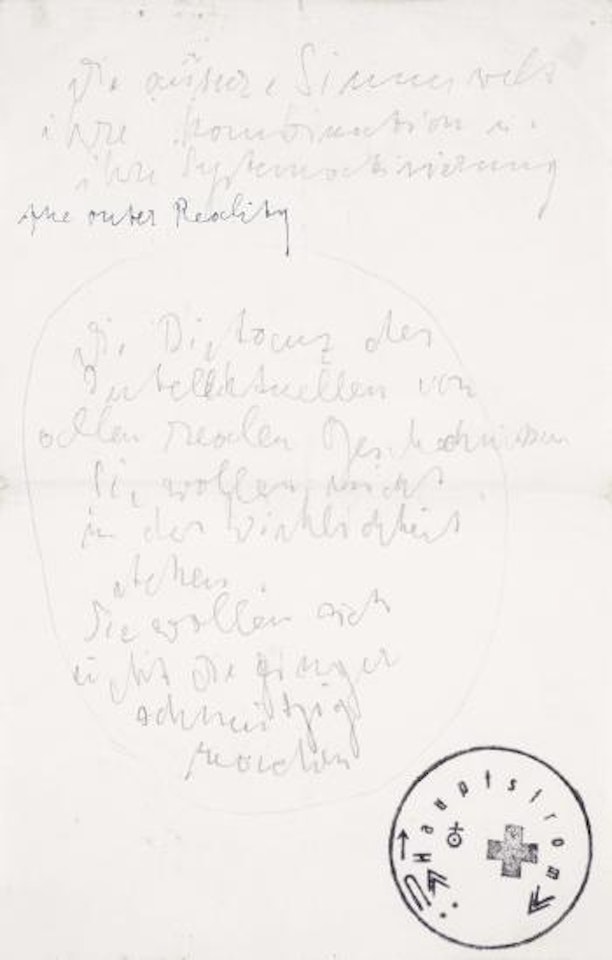 Die äußere Sinneswelt
ihre Kombination u.
ihre Systematisierung
the outer Reality
Die Distanz der
Intellektuellen von
allen realen Geschehnissen
Sie wollen nicht
in der Wirklichkeit
stehen.
Sie wollen sich
nicht die Finger
schmutzig
machen
Hauptstrom